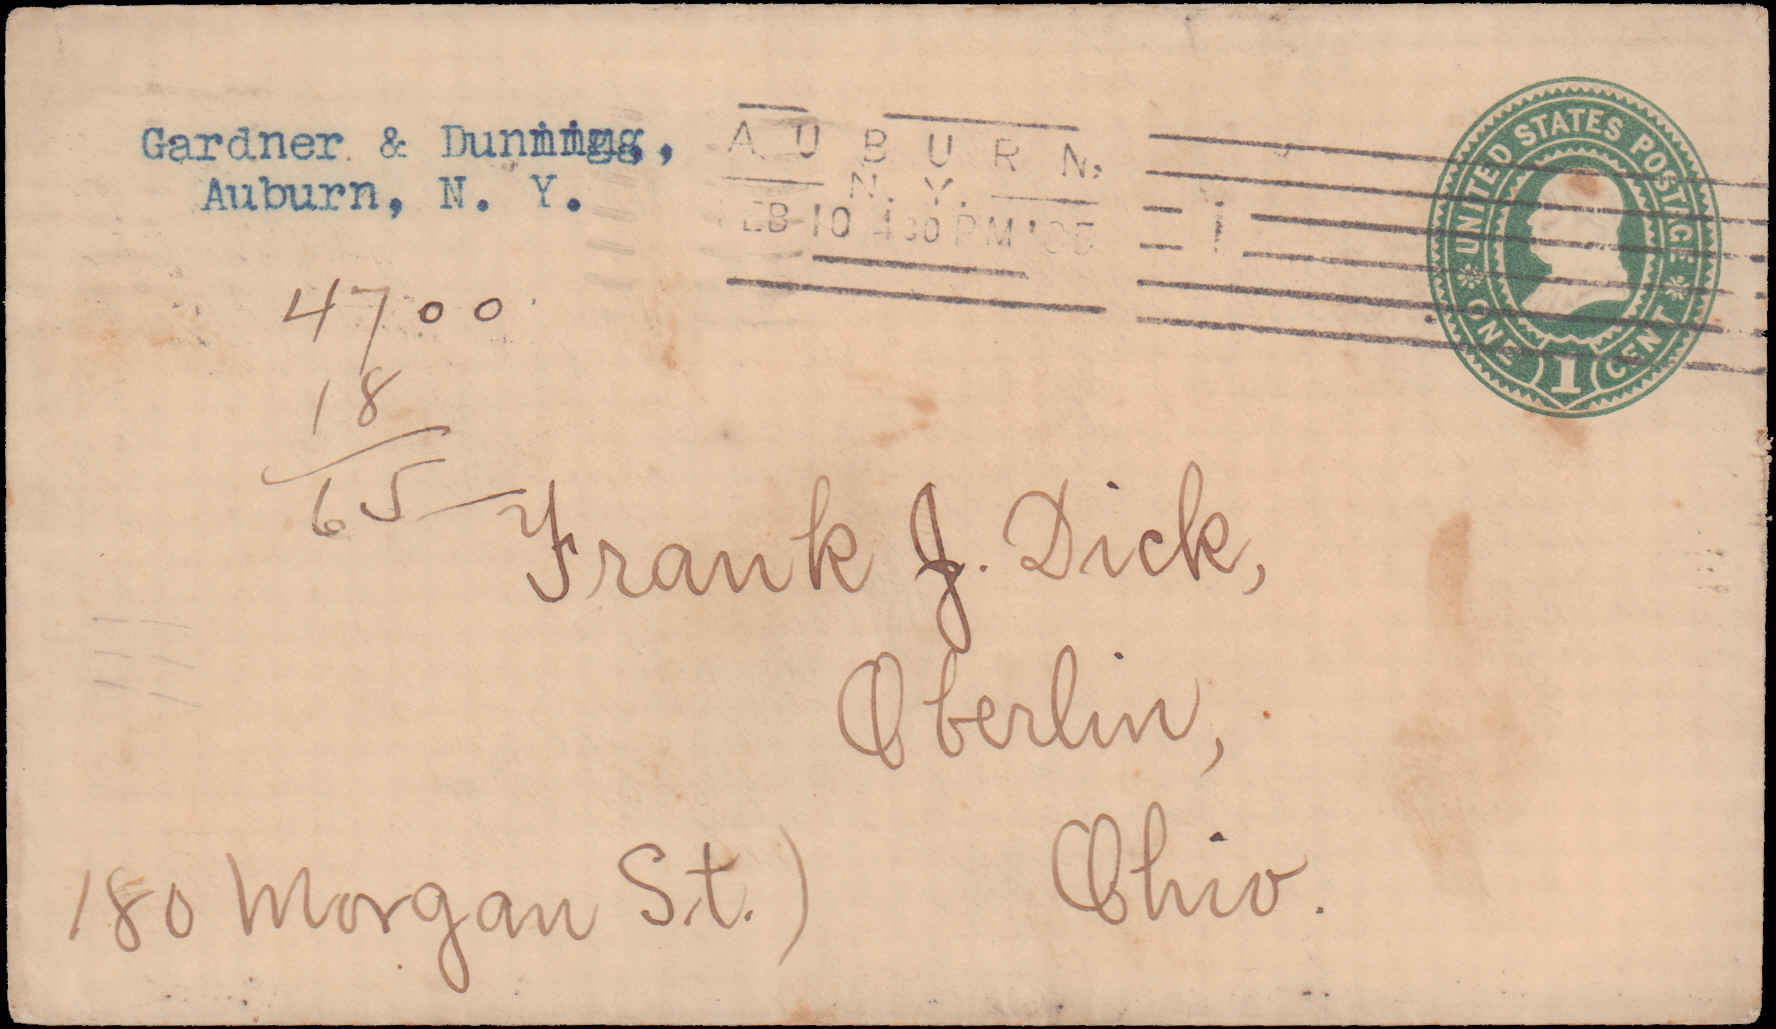 Gardner & Dunning,
Auburn, N. Y.
AUBURN,
N. Y.
FEB 10 4 30 PM '05
1
UNITED STATES POSTAGE
ONE 1 CENT
4700
18
65
Frank J. Dick,
Oberlin,
Ohio.
180 Morgan St.)